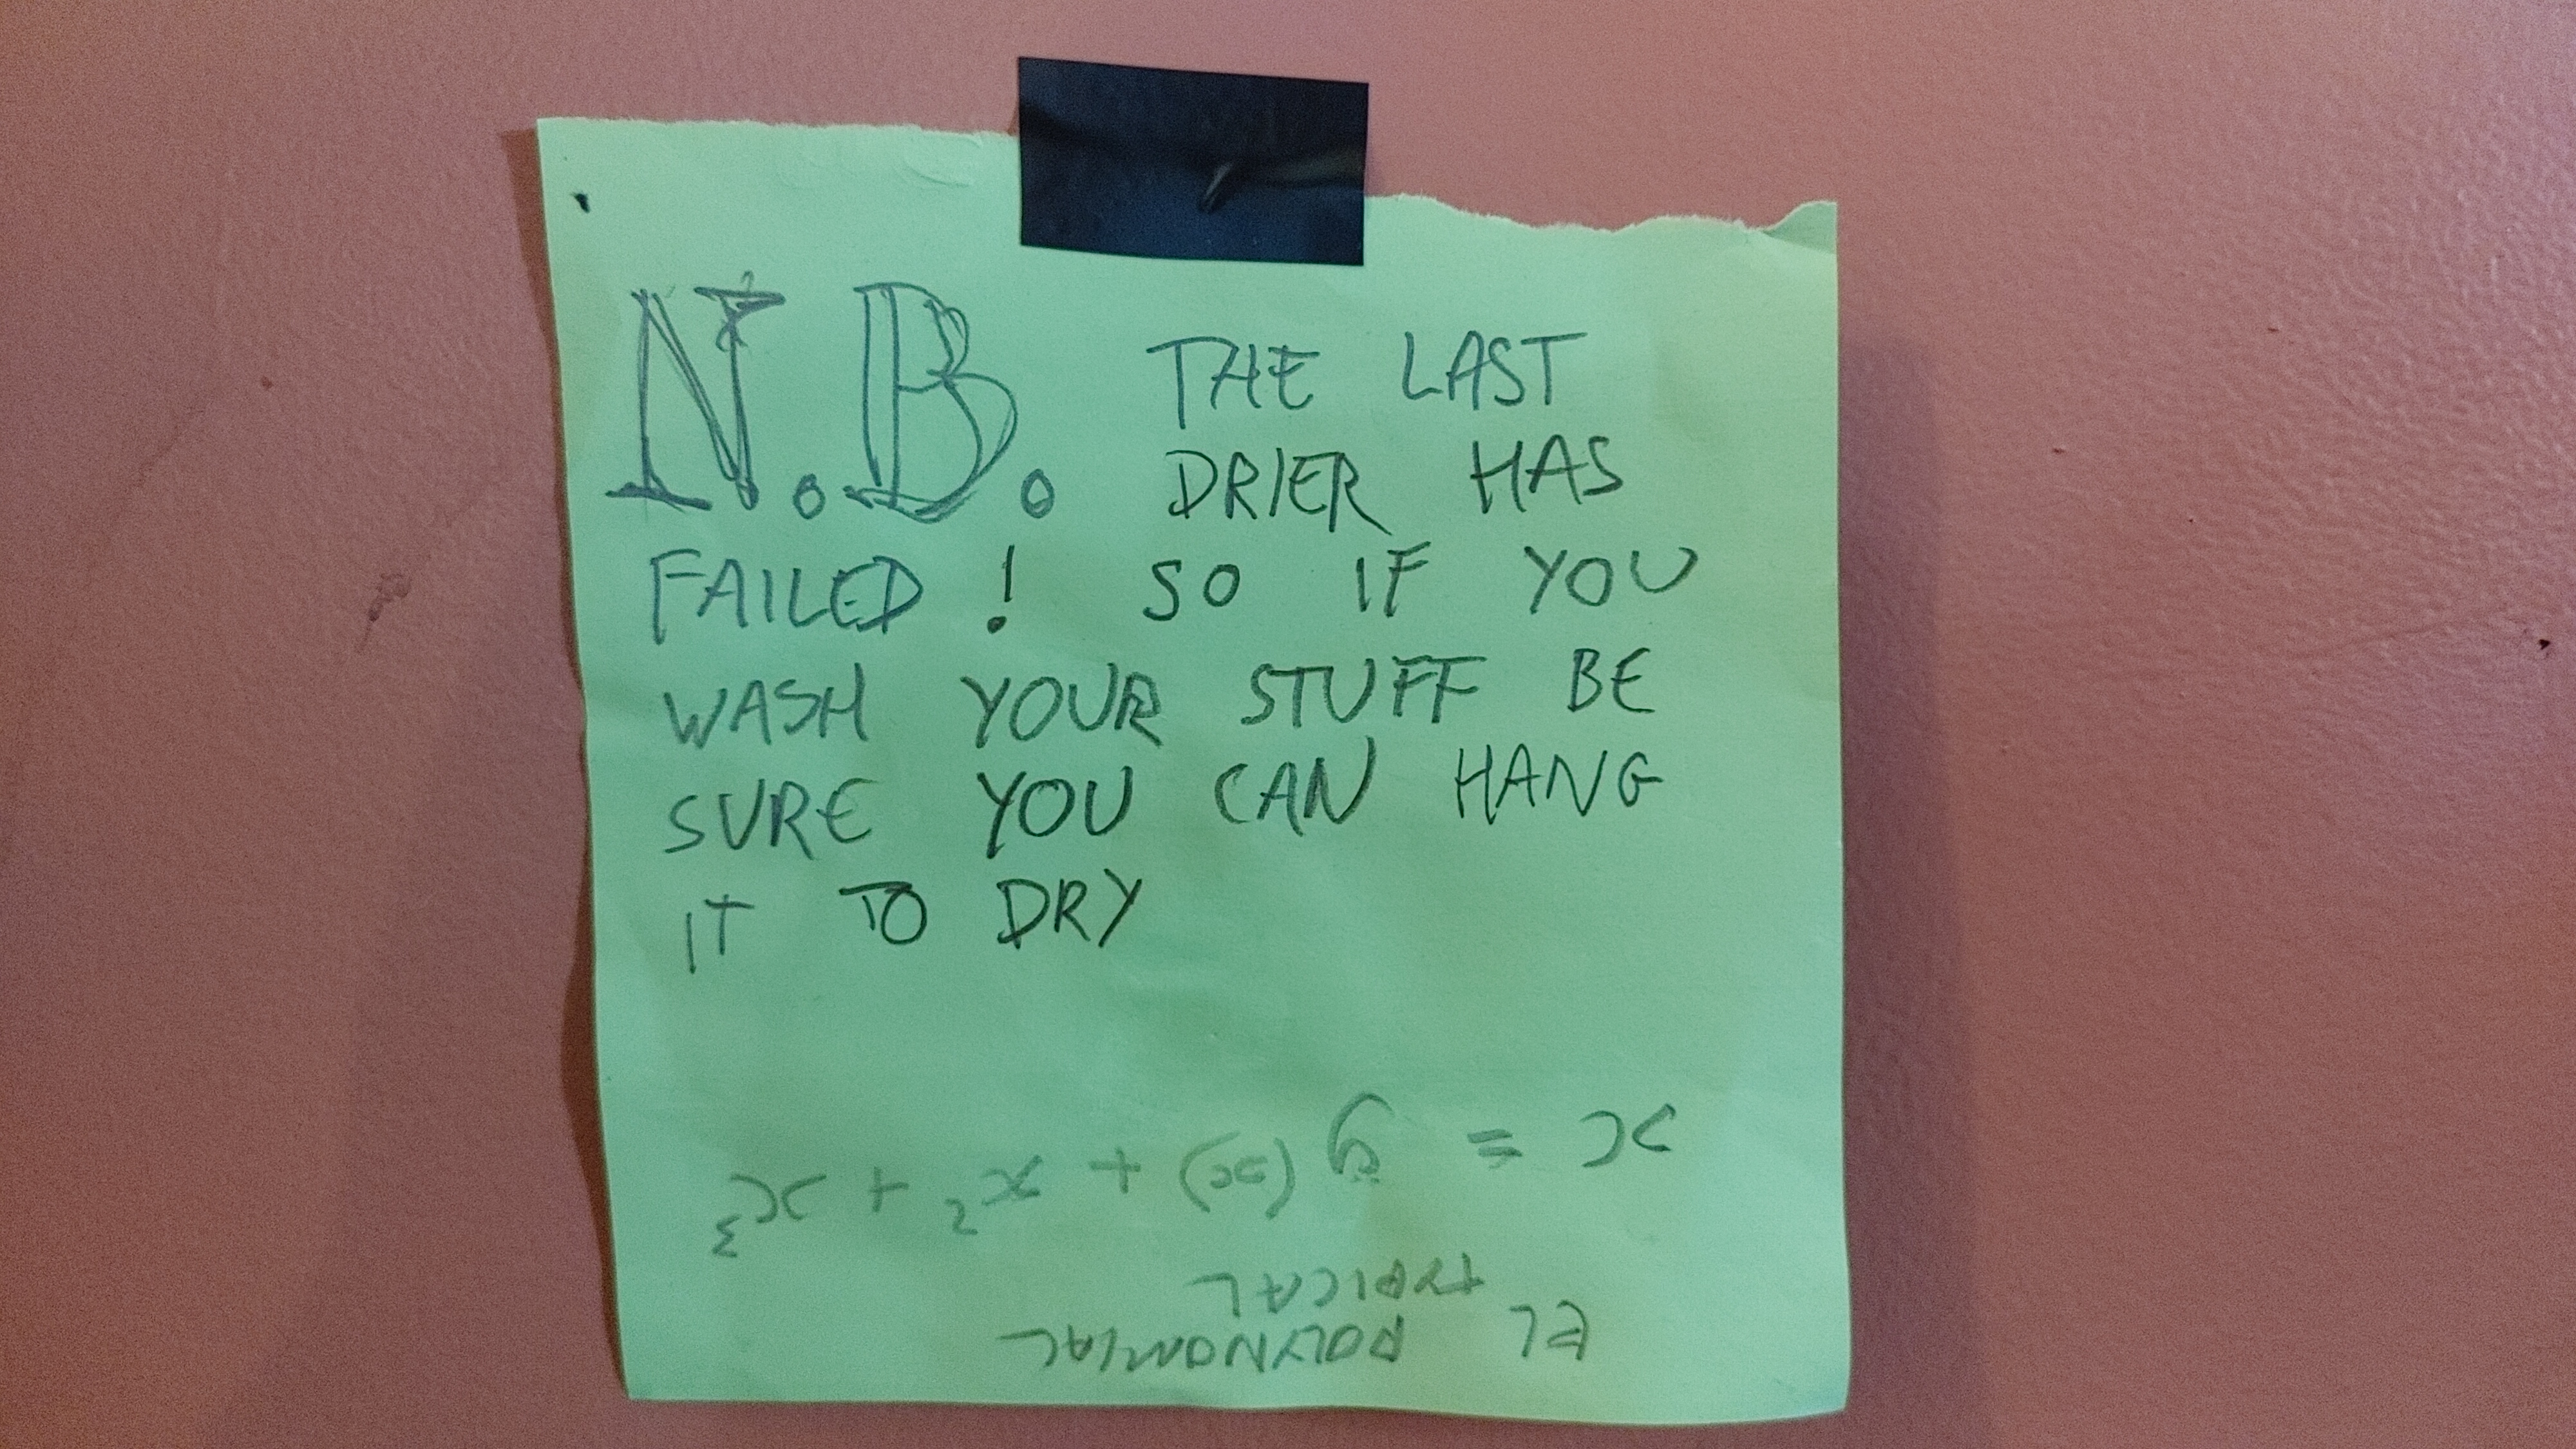 N.B. THE LAST
DRIER HAS
FAILED! SO IF YOU
WASH YOUR STUFF BE
SURE YOU CAN HANG
IT TO DRY
EL POLYNOMIAL
TYPICAL
x = g(x) + x² + x³